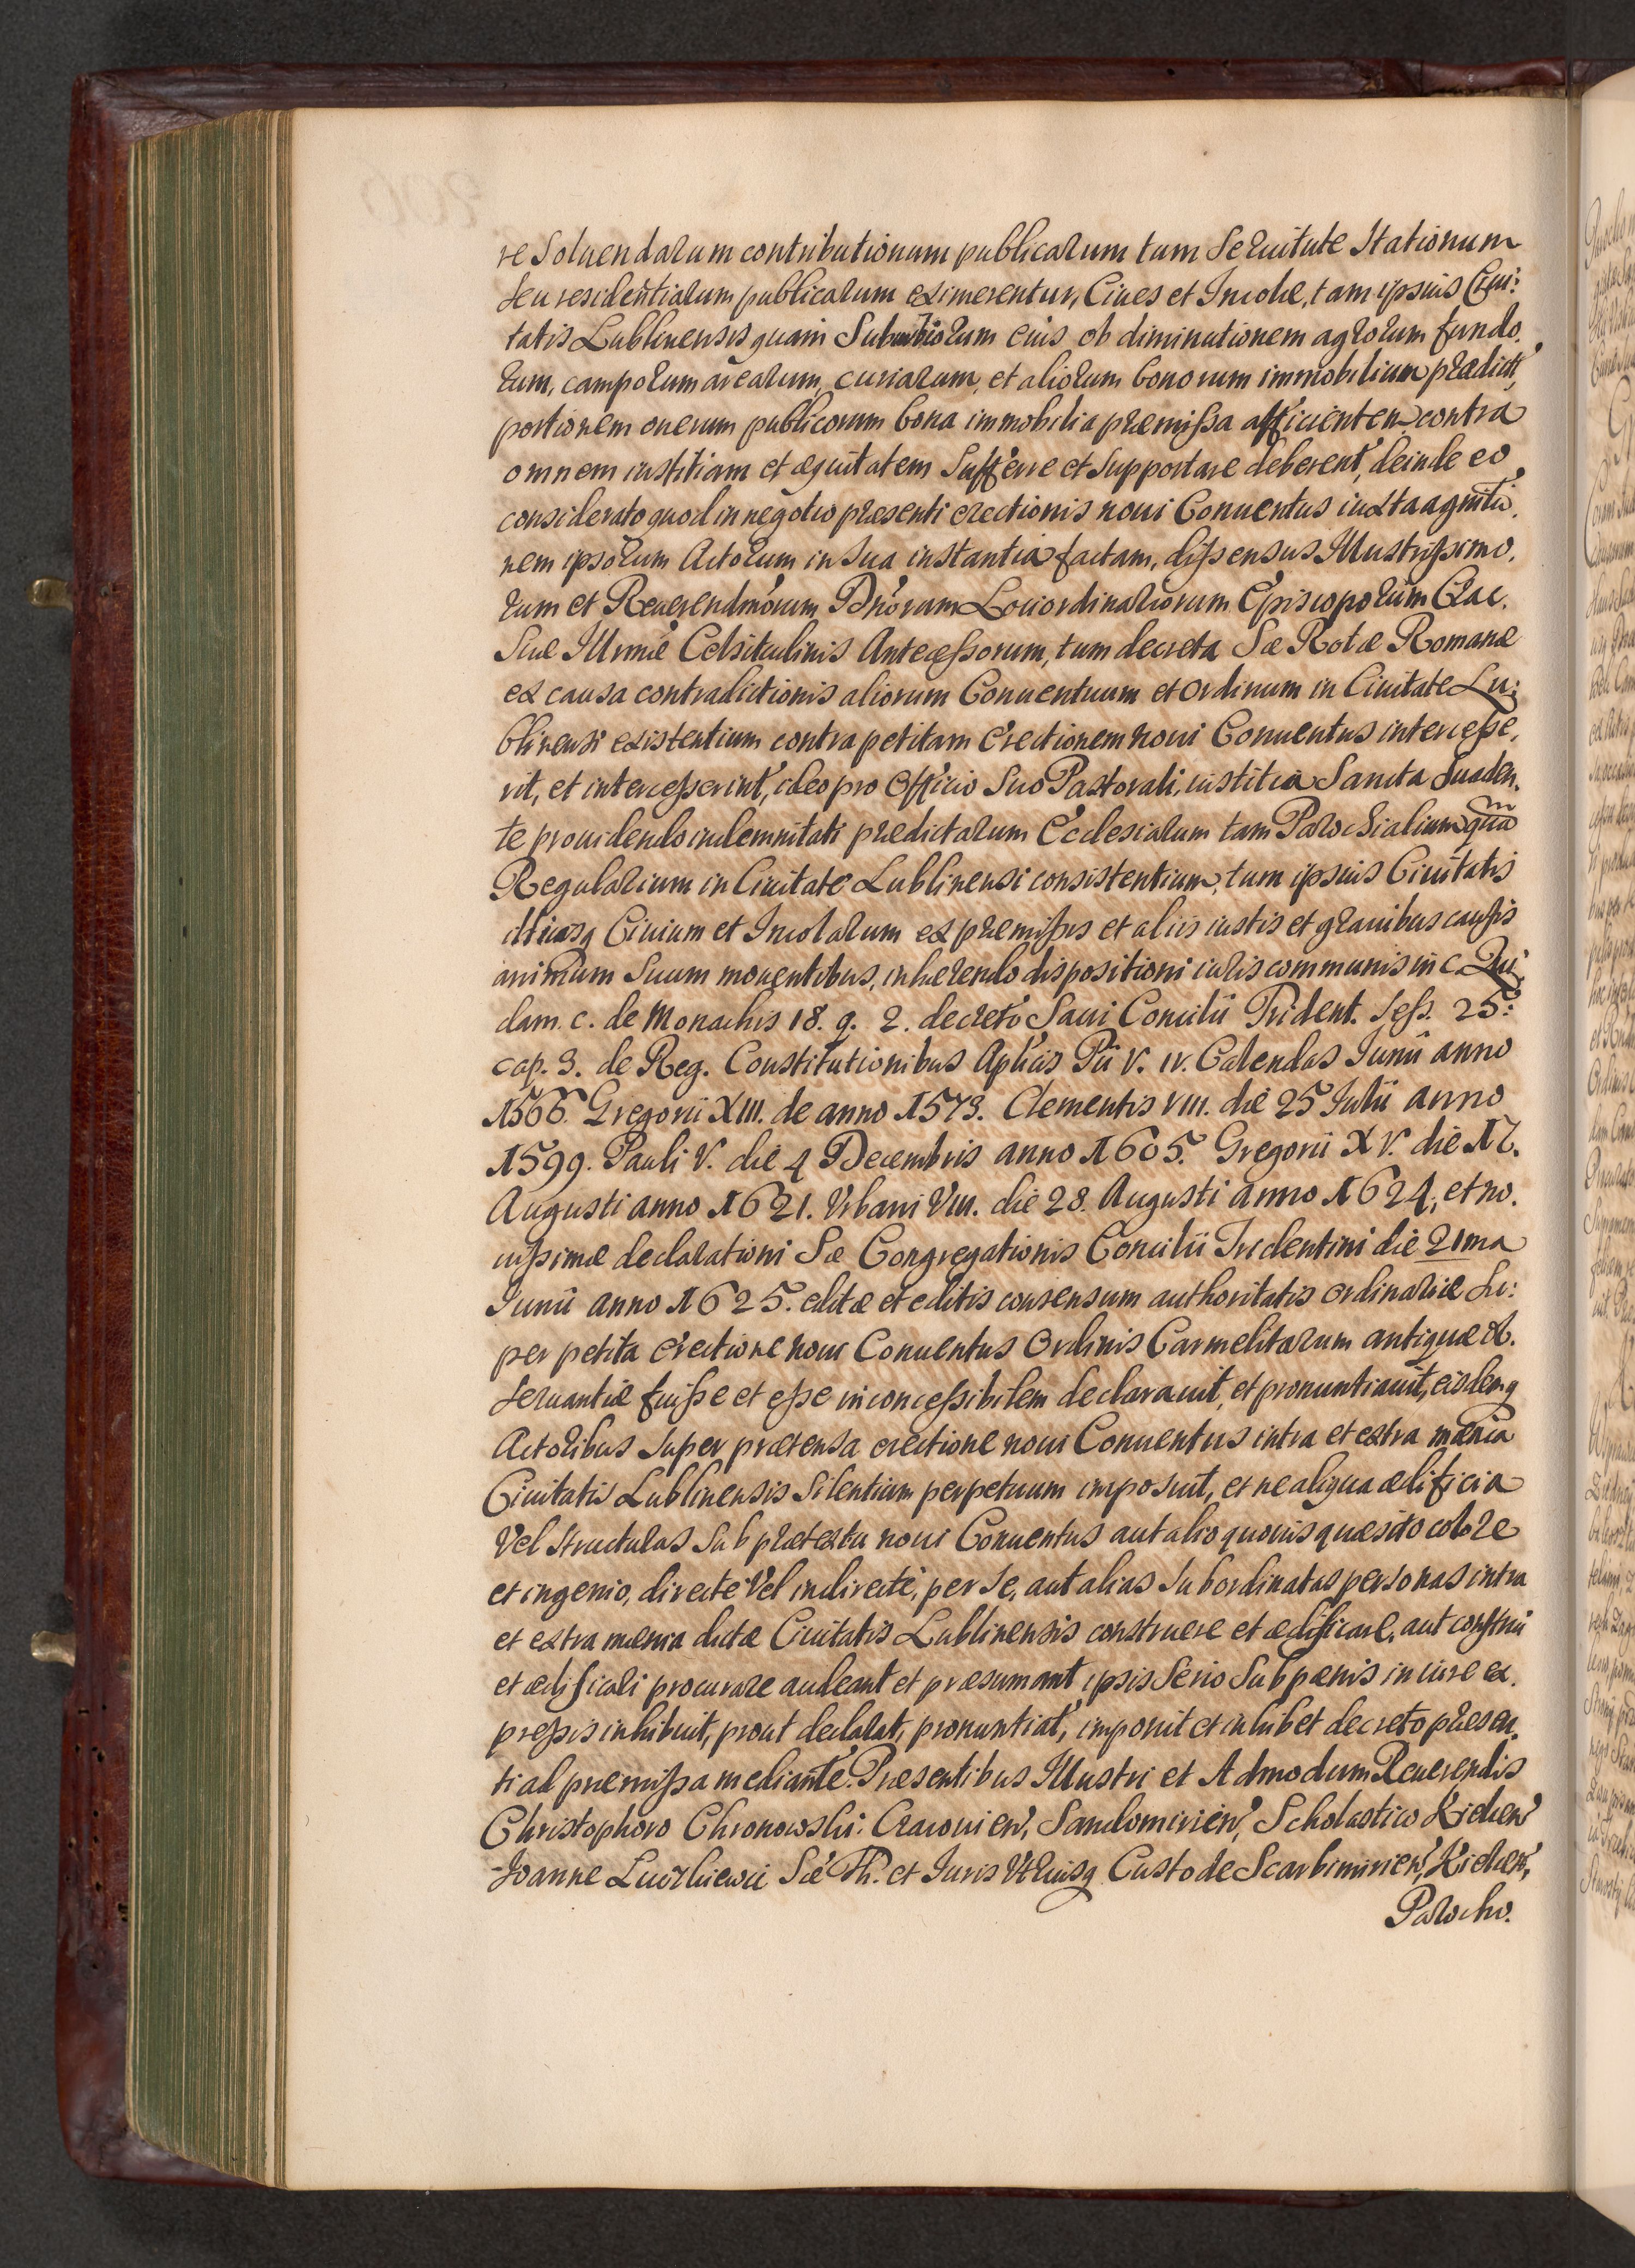 re Soluendarum contributionum publicarum tum Seruitute Stationum
seu residentiarum publicarum eximerentur, Ciues et Incolæ, tam ipsius Ciui:
tatis Lublinensis quam Suburbiorum eius ob diminutionem agrorum fundo.
rum, camporum arearum, curiarum, et aliorum bonorum immobilium prædict,
portionem onerum publicorum bona immobilia præmissa afficienten contra
omnem iustitiam et æquitatem Sufferre et Supportare deberent, deinde eo
considerato quod in negotio præsenti erectionis noui Conuentus iuxta agnitio.
nem ipsorum Actorum in Sua instantia factam, dissensus Illustrissimo.
rum et Reuerendmorum Dnorum Lociordinariorum Episcoporum Crac.
Suæ Illrmæ Celsitudinis Antecessorum, tum decreta Sæ Rotæ Romanæ
ex causa contradictionis aliorum Conuentuum et Ordinum in Ciuitate Lu:
blinensi existentium contra petitam Erectionem noui Conuentus intercesse.
rit, et intercesserint, ideo pro Officio Suo Pastorali, iustitia Sancta Suaden.
te prouidendo indemnitati prædictarum Ecclesiarum tam Parochialium qua
m
Regularium in Ciuitate Lublinensi consistentium, tum ipsius Ciuitatis
illiusq Ciuium et Incolarum ex præmissis et aliis iustis et grauibus causis
animum Suum mouentibus, inhærendo dispositioni iuris communis in c. Qui
dam. c. de Monachis 18. q. 2. decreto Sacri Concilii Trident. Sess. 25:
cap. 3. de Reg. Constitutionibus Aplicis Pii V. IV. Calendas Iunii anno
1566. Gregorii XIII. de anno 1573. Clementis VIII. die 25 Iulii anno
1599. Pauli V. die 4 Decembris anno 1605. Gregorii XV. die 17.
Augusti anno 1621. Vrbani VIII. die 28. Augusti anno 1624, et no.
uissimæ declarationi Sæ Congregationis Concilii Tridentini die 21ma
Iunii anno 1625. editæ et editis consensum authoritatis ordinariæ Su:
per petita erectione noui Conuentus Ordinis Carmelitarum antiquæ ob.
seruantiæ fuisse et esse inconcessibilem declarauit, et pronuntiauit, eisdemq
Actoribus Super prætensa erectione noui Conuentus intra et extra mænia
Ciuitatis Lublinensis Silentium perpetuum imposuit, et ne aliqua ædificia
Vel Structuras Sub prætextu noui Conuentus aut alio quouis quæsito colore
et ingenio, directe Vel indirecte, per Se, aut alias Subordinatas personas intra
et extra mænia dictæ Ciuitatis Lublinensis construere et ædificare, aut construi
et ædificari procurare audeant et præsumant ipsis Serio Sub pænis in iure ex.
pressis inhibuit, prout declarat, pronuntiat, imponit et inhibet decreto præsen.
ti ad præmissa mediante. Præsentibus Illustri et Admodum Reuerendis
Christophoro Chronowski: Cracouien, Sandomirien, Scholastico Kielcen
Joanne Sæ Th. et Iuris Vtriusq Custode Scarbimirien, Kielcen,
Parocho.